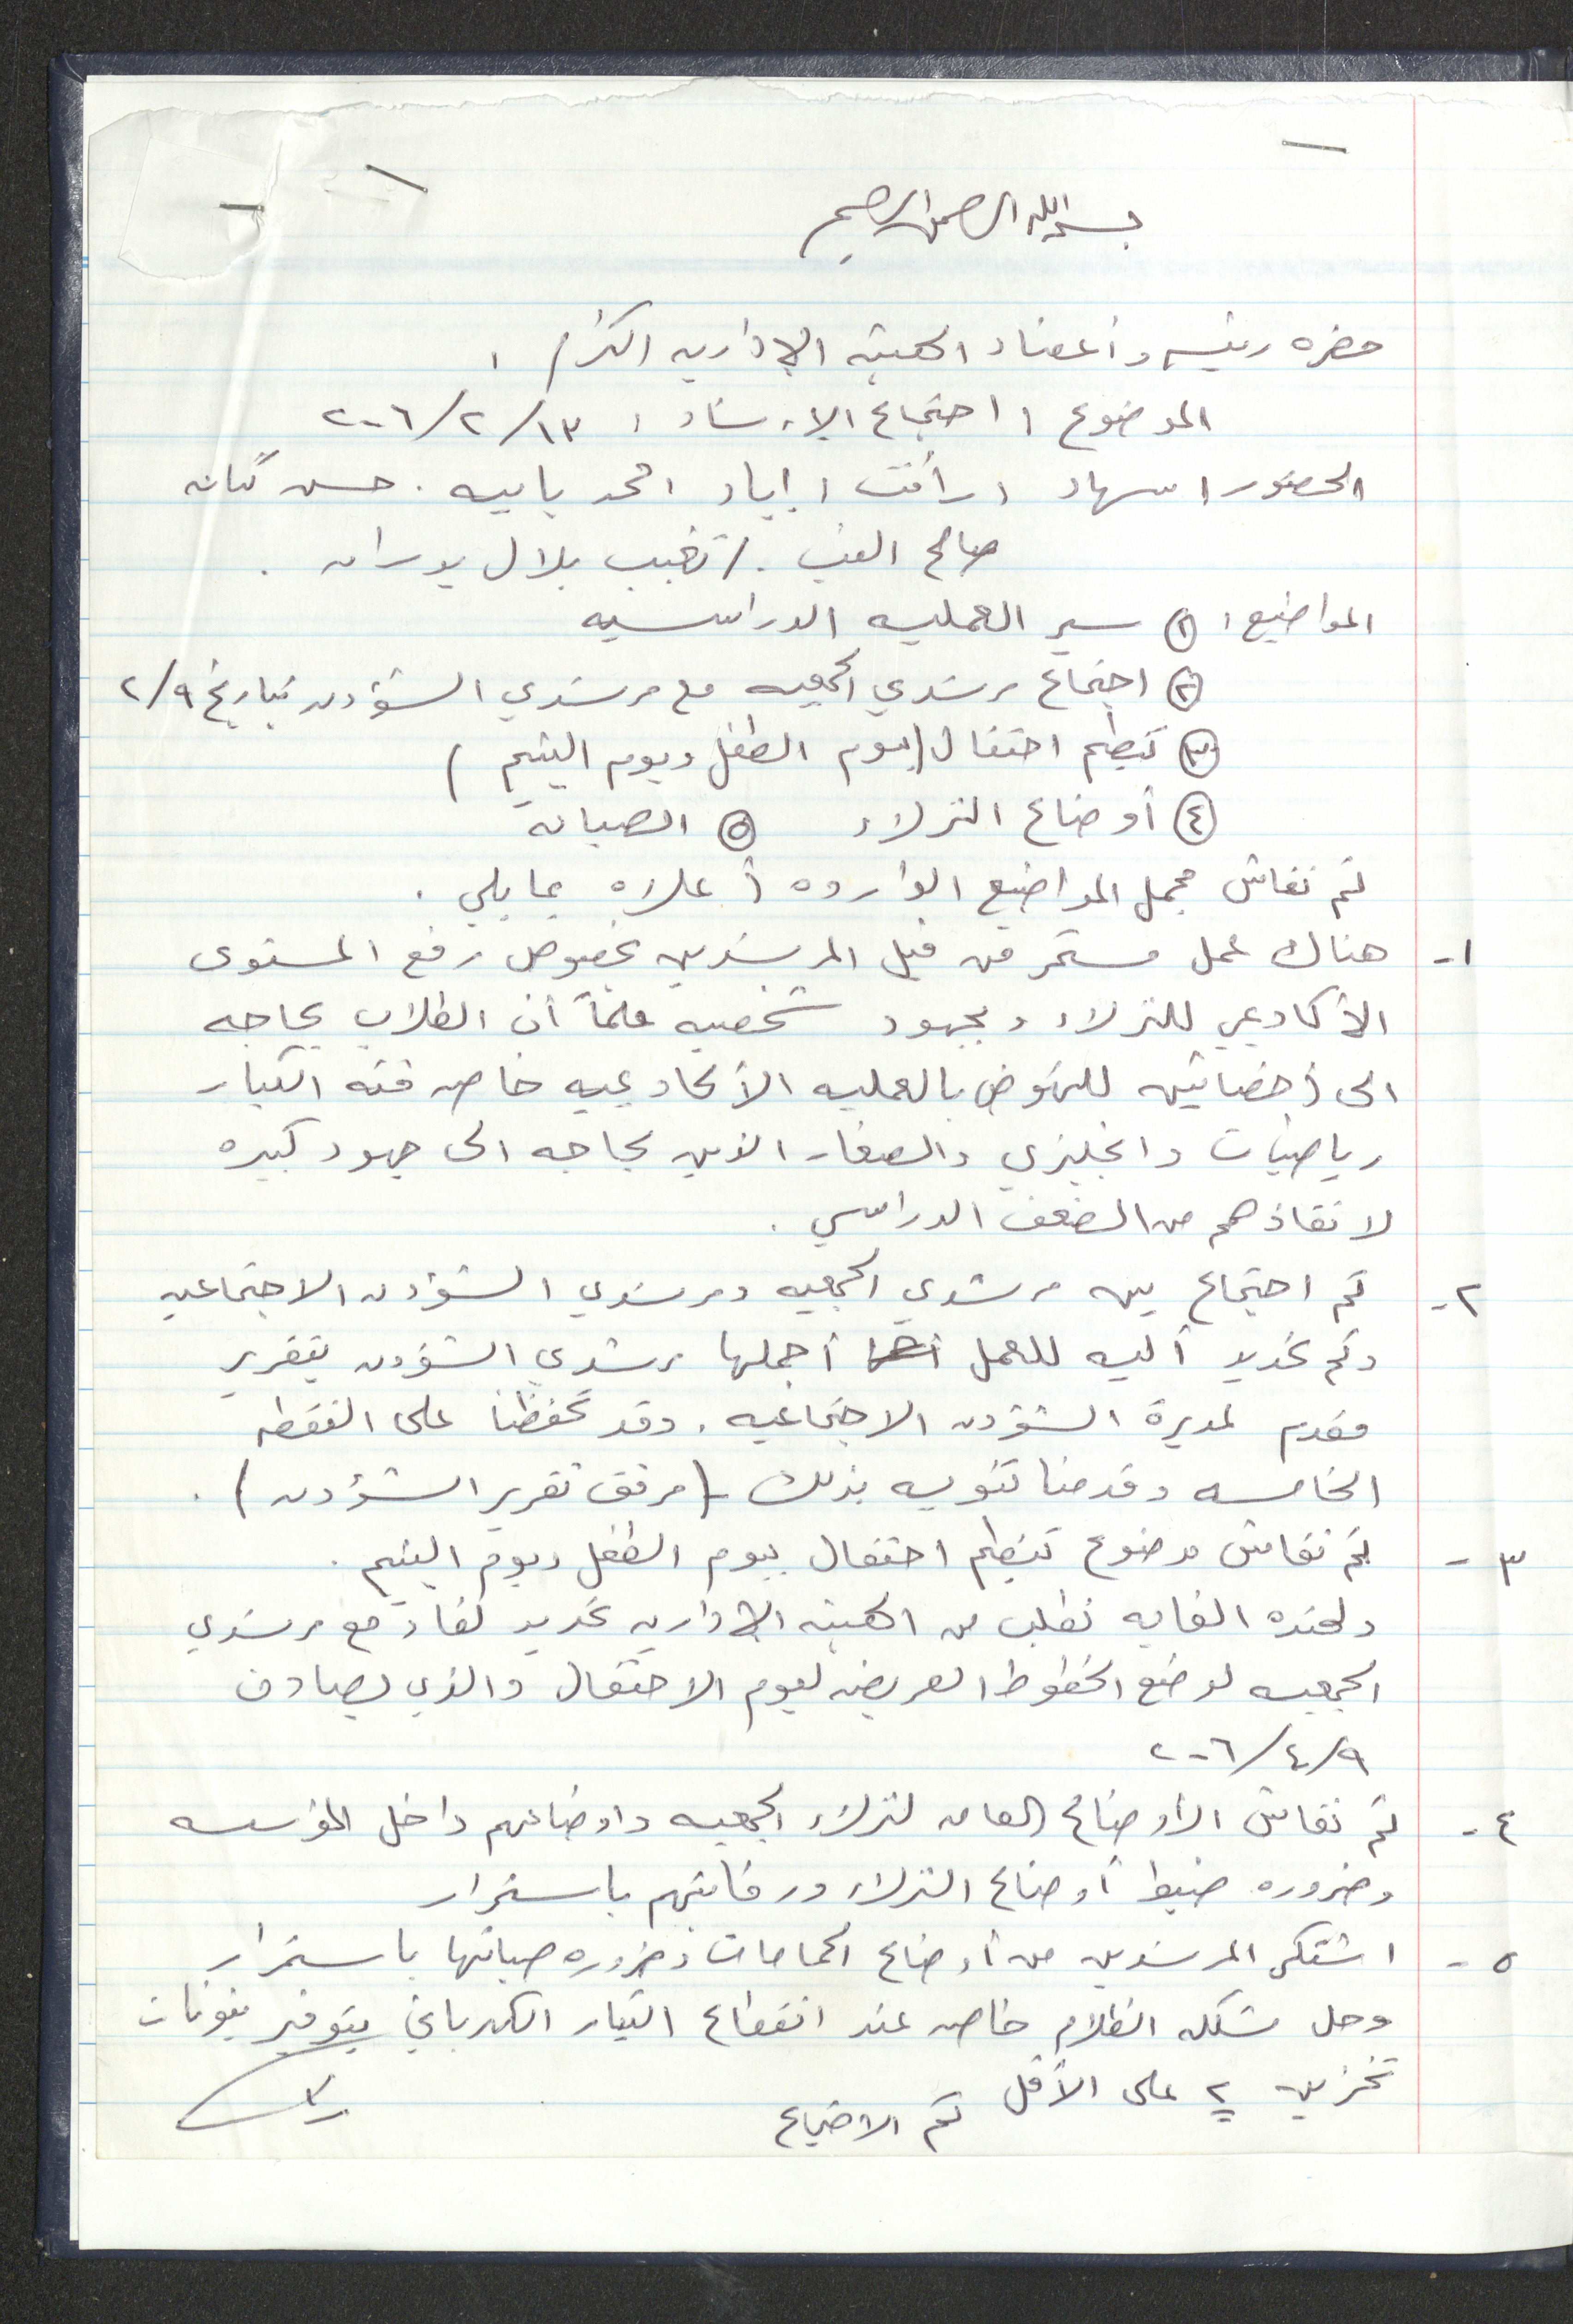 بسم الله الرحمن الرحيم
حضره رئيس وأعضاء الهيئه الإداريه الكرام ،
الموضوع : اجتماع الإرشاد : ١٣/٢/٢٠٠٦
الحضور : سهاد ، رأفت ، اياد ، محمد ياسين . حسن كنانه
صالح . / تغيب بلال بدران .
المواضيع : ① سير العمليه الدراسيه
② اجتماع مرشدي الجمعيه مع مرشدي الشؤون بتاريخ ٢/٩
③ تنظيم احتفال (بيوم الطفل ويوم اليتيم )
④ أوضاع النزلاء ⑤ الصيانة
تم نقاش مجمل المواضيع الوارده أعلاه بما يلي .
١- هناك عمل مستمر من قبل المرشدين بخصوص رفع المستوى
الأكاديمي للنزلاء وبجهود شخصيه علماً أن الطلاب بحاجه
الى أخصائيين للنهوض بالعمليه الأكاديميه خاصه فئه الكبار
رياضيات وانجليزي والصغار الذين بحاجه الى جهود كبيره
لانقاذهم من الضعف الدراسي .
٢- تم اجتماع بين مرشدي الجمعيه ومرشدي الشؤون الاجتماعيه
وتم تحديد أليه للعمل أجملها مرشدي الشؤون بتقرير
مقدم لمديرة الشؤون الاجتماعيه . وقد تحفظنا على النقطه
الخامسه وقدمنا تنويه بذلك - (مرفق تقرير الشؤون ) .
٣- تم نقاش موضوع تنظيم احتفال بيوم الطفل ويوم اليتيم .
ولهذه الغايه نطلب من الهيئه الإداريه تحديد لقاء مع مرشدي
الجمعيه لوضع الخطوط العريضه ليوم الاحتفال والذي يصادف
٩/٤/٢٠٠٦
٤- تم نقاش الأوضاع العامه لنزلاء الجمعيه واوضاعهم داخل المؤسسه
وضروره ضبط أوضاع النزلاء ورقابتهم باستمرار
٥- اشتكى المرشدين من أوضاع الحمامات وضروره صيانتها باستمرار
وحل مشكله الظلام خاصه عند انقطاع التيار الكهربائي بتوفير
تخزين ٢ على الأقل
تم الاجتماع